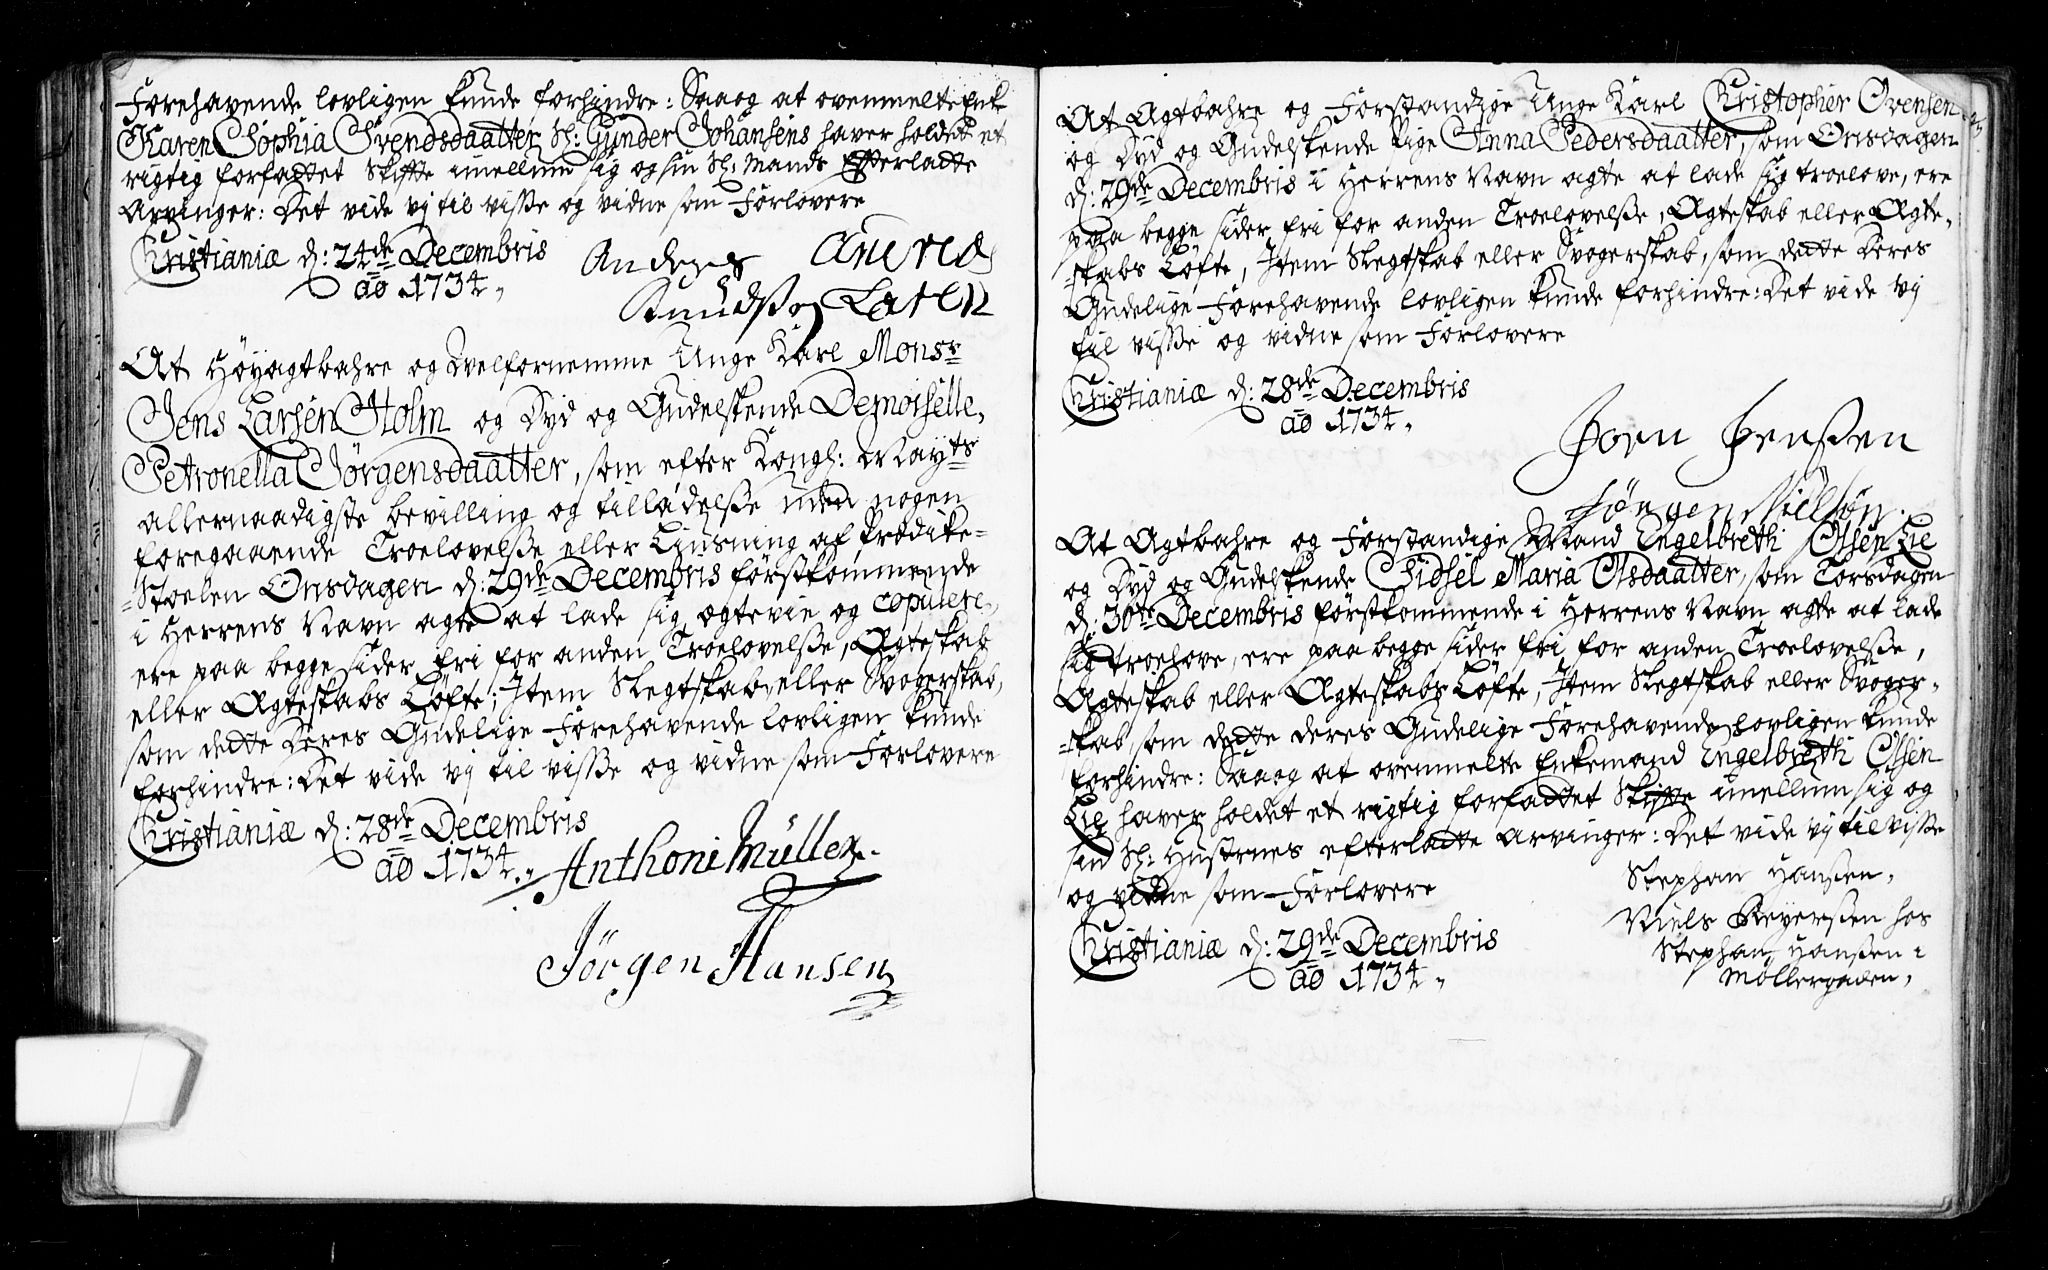 Forehavende lovligen kunde forhindre: Saa og at ovenmelte Enk
Karen Sophia Svendsdaatter Sl: Gunder Johansens haver holdet et
rigtig forfattet Skifte imellum sig og sin Sl: Mands Efterladte
Arvinger: Det vide vj til visse og vidne som Forlovere
Christianiæ d: 24de Decembris
ao 1734.
Anders
Knudsøn Larsen
At Høyagtbahre og Welfornemme Unge Karl Monsr
Jens Larsen Holm og Dyd og Gudelskende Demoiselle,
Petronella Jørgensdaatter, som efter Kongl: Mayts
allernaadigste bevilling og tilladelse uden nogen
foregaaende Troelovelse eller Liusning af Prædike-
-Stoelen Onsdagen d: 29de Decembris førstkommende
i Herrens Navn agte at lade sig ægtevie og copulere,
ere paa begge sider fri for anden Troelovelse, Ægteskab
eller Ægteskabs Løfte; Item Slegtskab eller Svogerskab,
som dette Deres Gudelige Forehavende lovligen kunde
forhindre: Det vide vj til visse og vidne som Forlovere
Christianiæ d: 28de Decembris
ao 1734.
Anthoni Müller.
Jörgen Hansen
At Agtbahre og Forstandige Unge Karl Christopher Ovensen
og Dyd og Gudelskende Pige Anna Pedersdaatter, som Onsdagen
d: 29de Decembris i Herrens Navn agte at lade sig troelove, ere
paa begge sider fri for anden Troelovelse, Ægteskab eller Ægte-
-skabs Løfte, Item Slegtskab eller Svogerskab, som dette Deres
Gudelige Forehavende lovligen kunde forhindre: Det vide vj
til visse og vidne som Forlovere
Christianiæ d: 28de Decembris
ao 1734.
Joen Jensen
Jörgen Nielsøn.
At Agtbahre og Forstandige Mand Engelbreth Olsen Lie
og Dyd og Gudelskende Sidsel Maria Olsdaatter, som Torsdagen
d: 30te Decembris førstkommende i Herrens Navn agte at lade
sig troelove, ere paa begge sider fri for anden Troelovelse,
Ægteskab eller Ægteskabs Løfte, Item Slegtskab eller Svoger-
-skab, som dette deres Gudelige Forehavende lovligen kunde
forhindre: Saa og at ovenmelte Enkemand Engelbreth Olsen
Lie haver holdet et rigtig forfattet Skifte imellum sig og
sin Sl: Hustrues efterladte Arvinger: Det vide vj til visse
og vidne som Forlovere
Christianiæ d: 29de Decembris
ao 1734.
Stephan Hansen,
Niels Reyersen hos
Stephan Hansen i
Möllergaden,